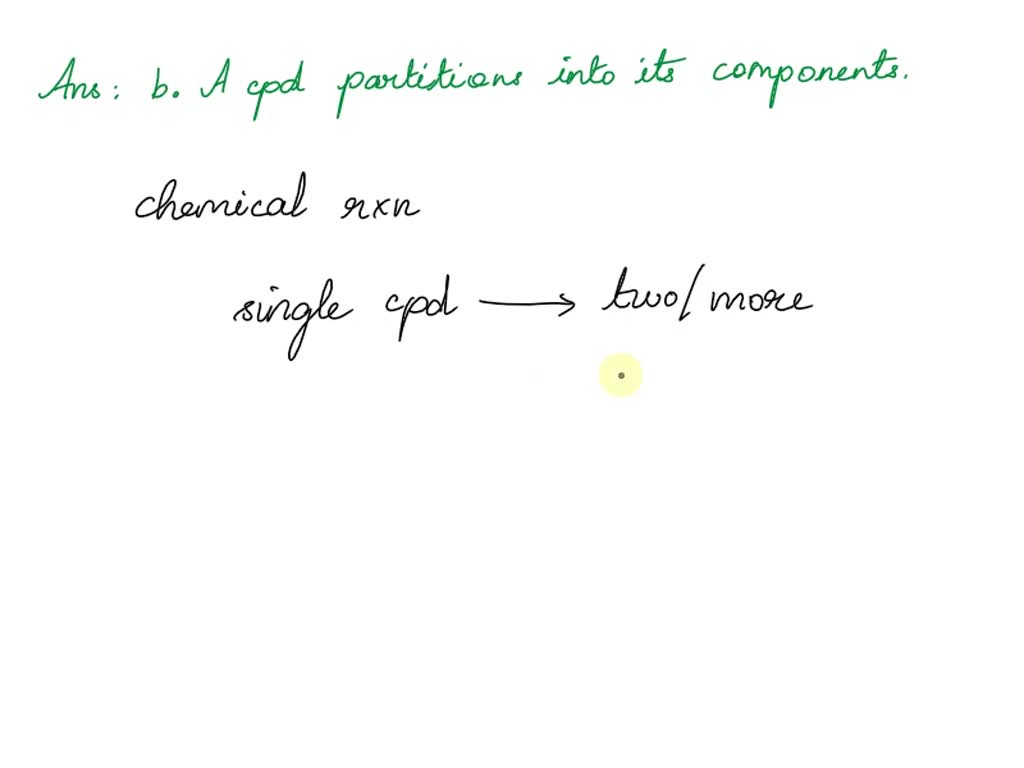 Ans: b. A cpd partitions into its components.
chemical rxn
single cpd → two/more